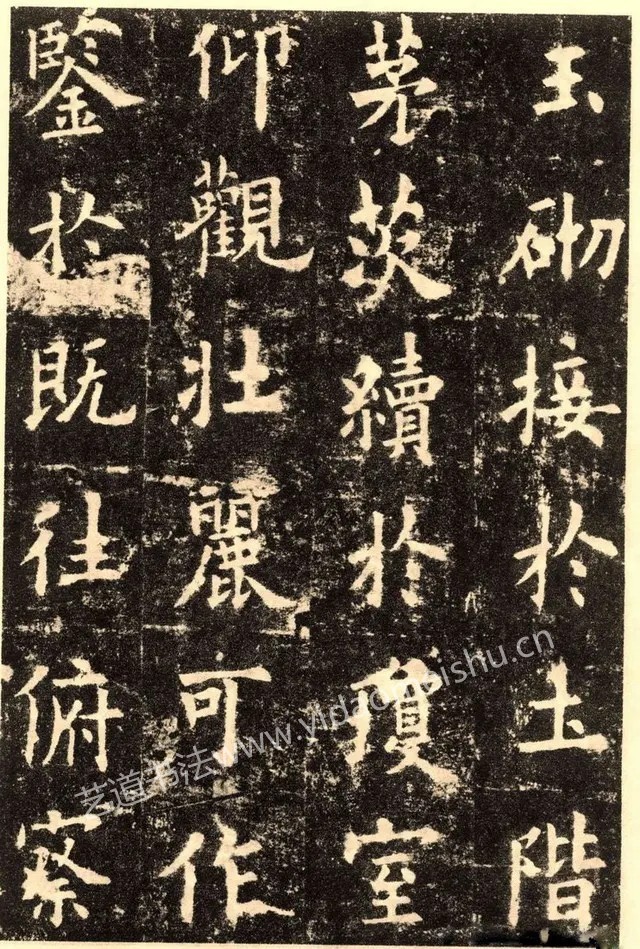 玉砌接於土階
茅茨續於瓊室
仰觀壯麗可作
鑒於既往俯察
艺道书法